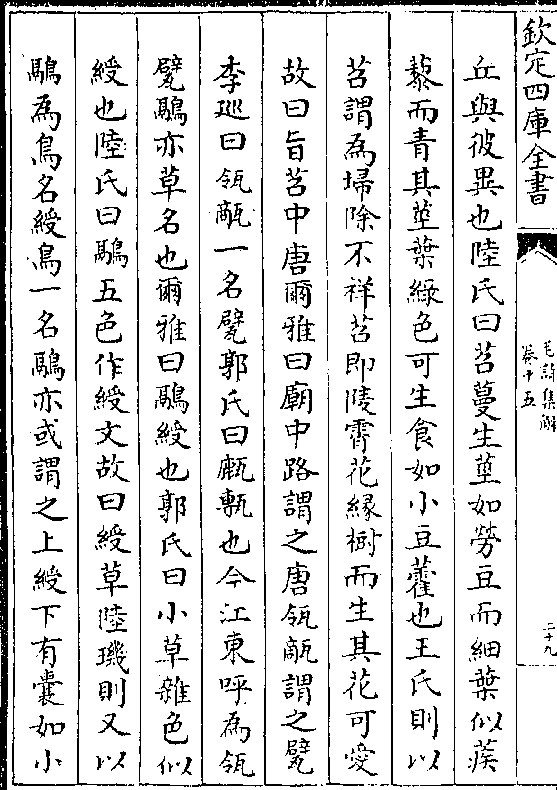 欽定四庫全書
毛詩集解
卷十五
二十九
丘與彼異也陸氏曰苕蔓生莖如勞豆而細葉似蒺
藜而青其莖葉綠色可生食如小豆藿也王氏則以
苕謂為埽除不祥苕即陵霄花緣樹而生其花可愛
故曰旨苕中唐爾雅曰廟中路謂之唐瓴甋謂之甓
李廵曰瓴甋一名甓郭氏曰㼾甎也今江東呼為瓴
甓鷊亦草名也爾雅曰鷊綬也郭氏曰小草雜色似
綬也陸氏曰鷊五色作綬文故曰綬草陸璣則又以
鷊為鳥名綬鳥一名鷊亦或謂之上綬下有囊如小